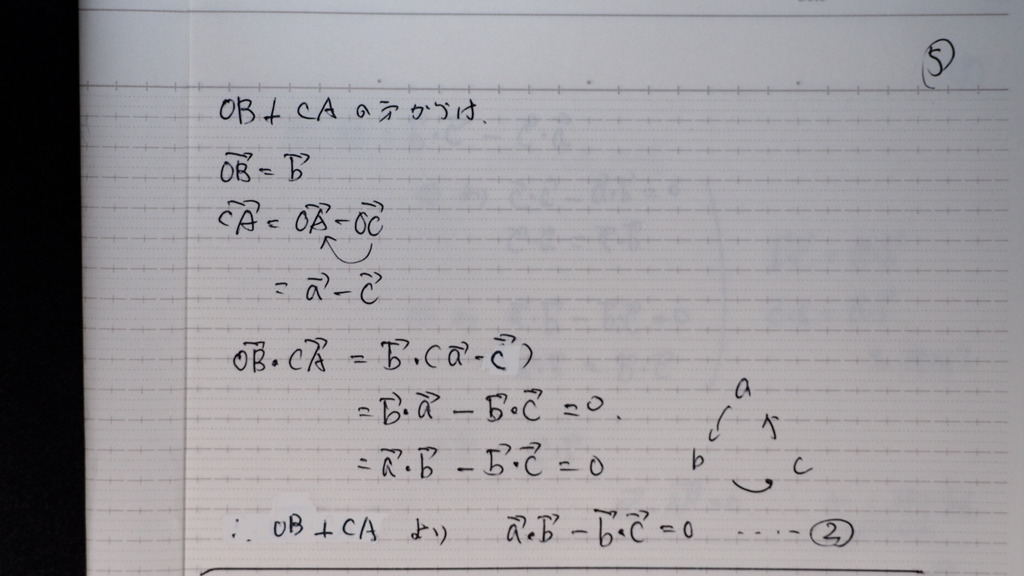 ⑤
OB⊥CA の条件は、
OB→ = b→
CA→ = OA→ - OC→
= a→ - c→
OB→・CA→ = b→・(a→ - c→)
= b→・a→ - b→・c→ = 0.
= a→・b→ - b→・c→ = 0
a
b c
∴ OB⊥CA より a→・b→ - b→・c→ = 0 ····· ②